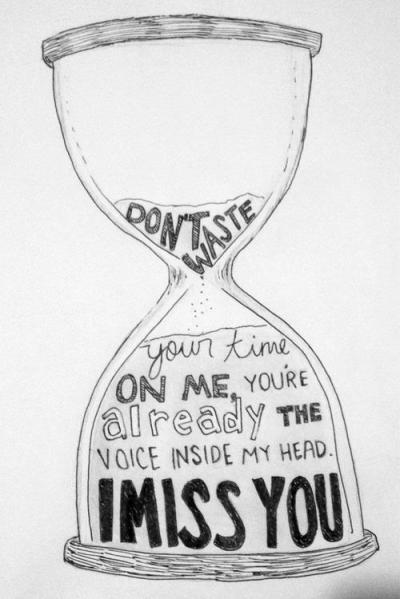 DON'T
WASTE
your time
ON ME, YOU'RE
already THE
VOICE INSIDE MY HEAD.
I MISS YOU